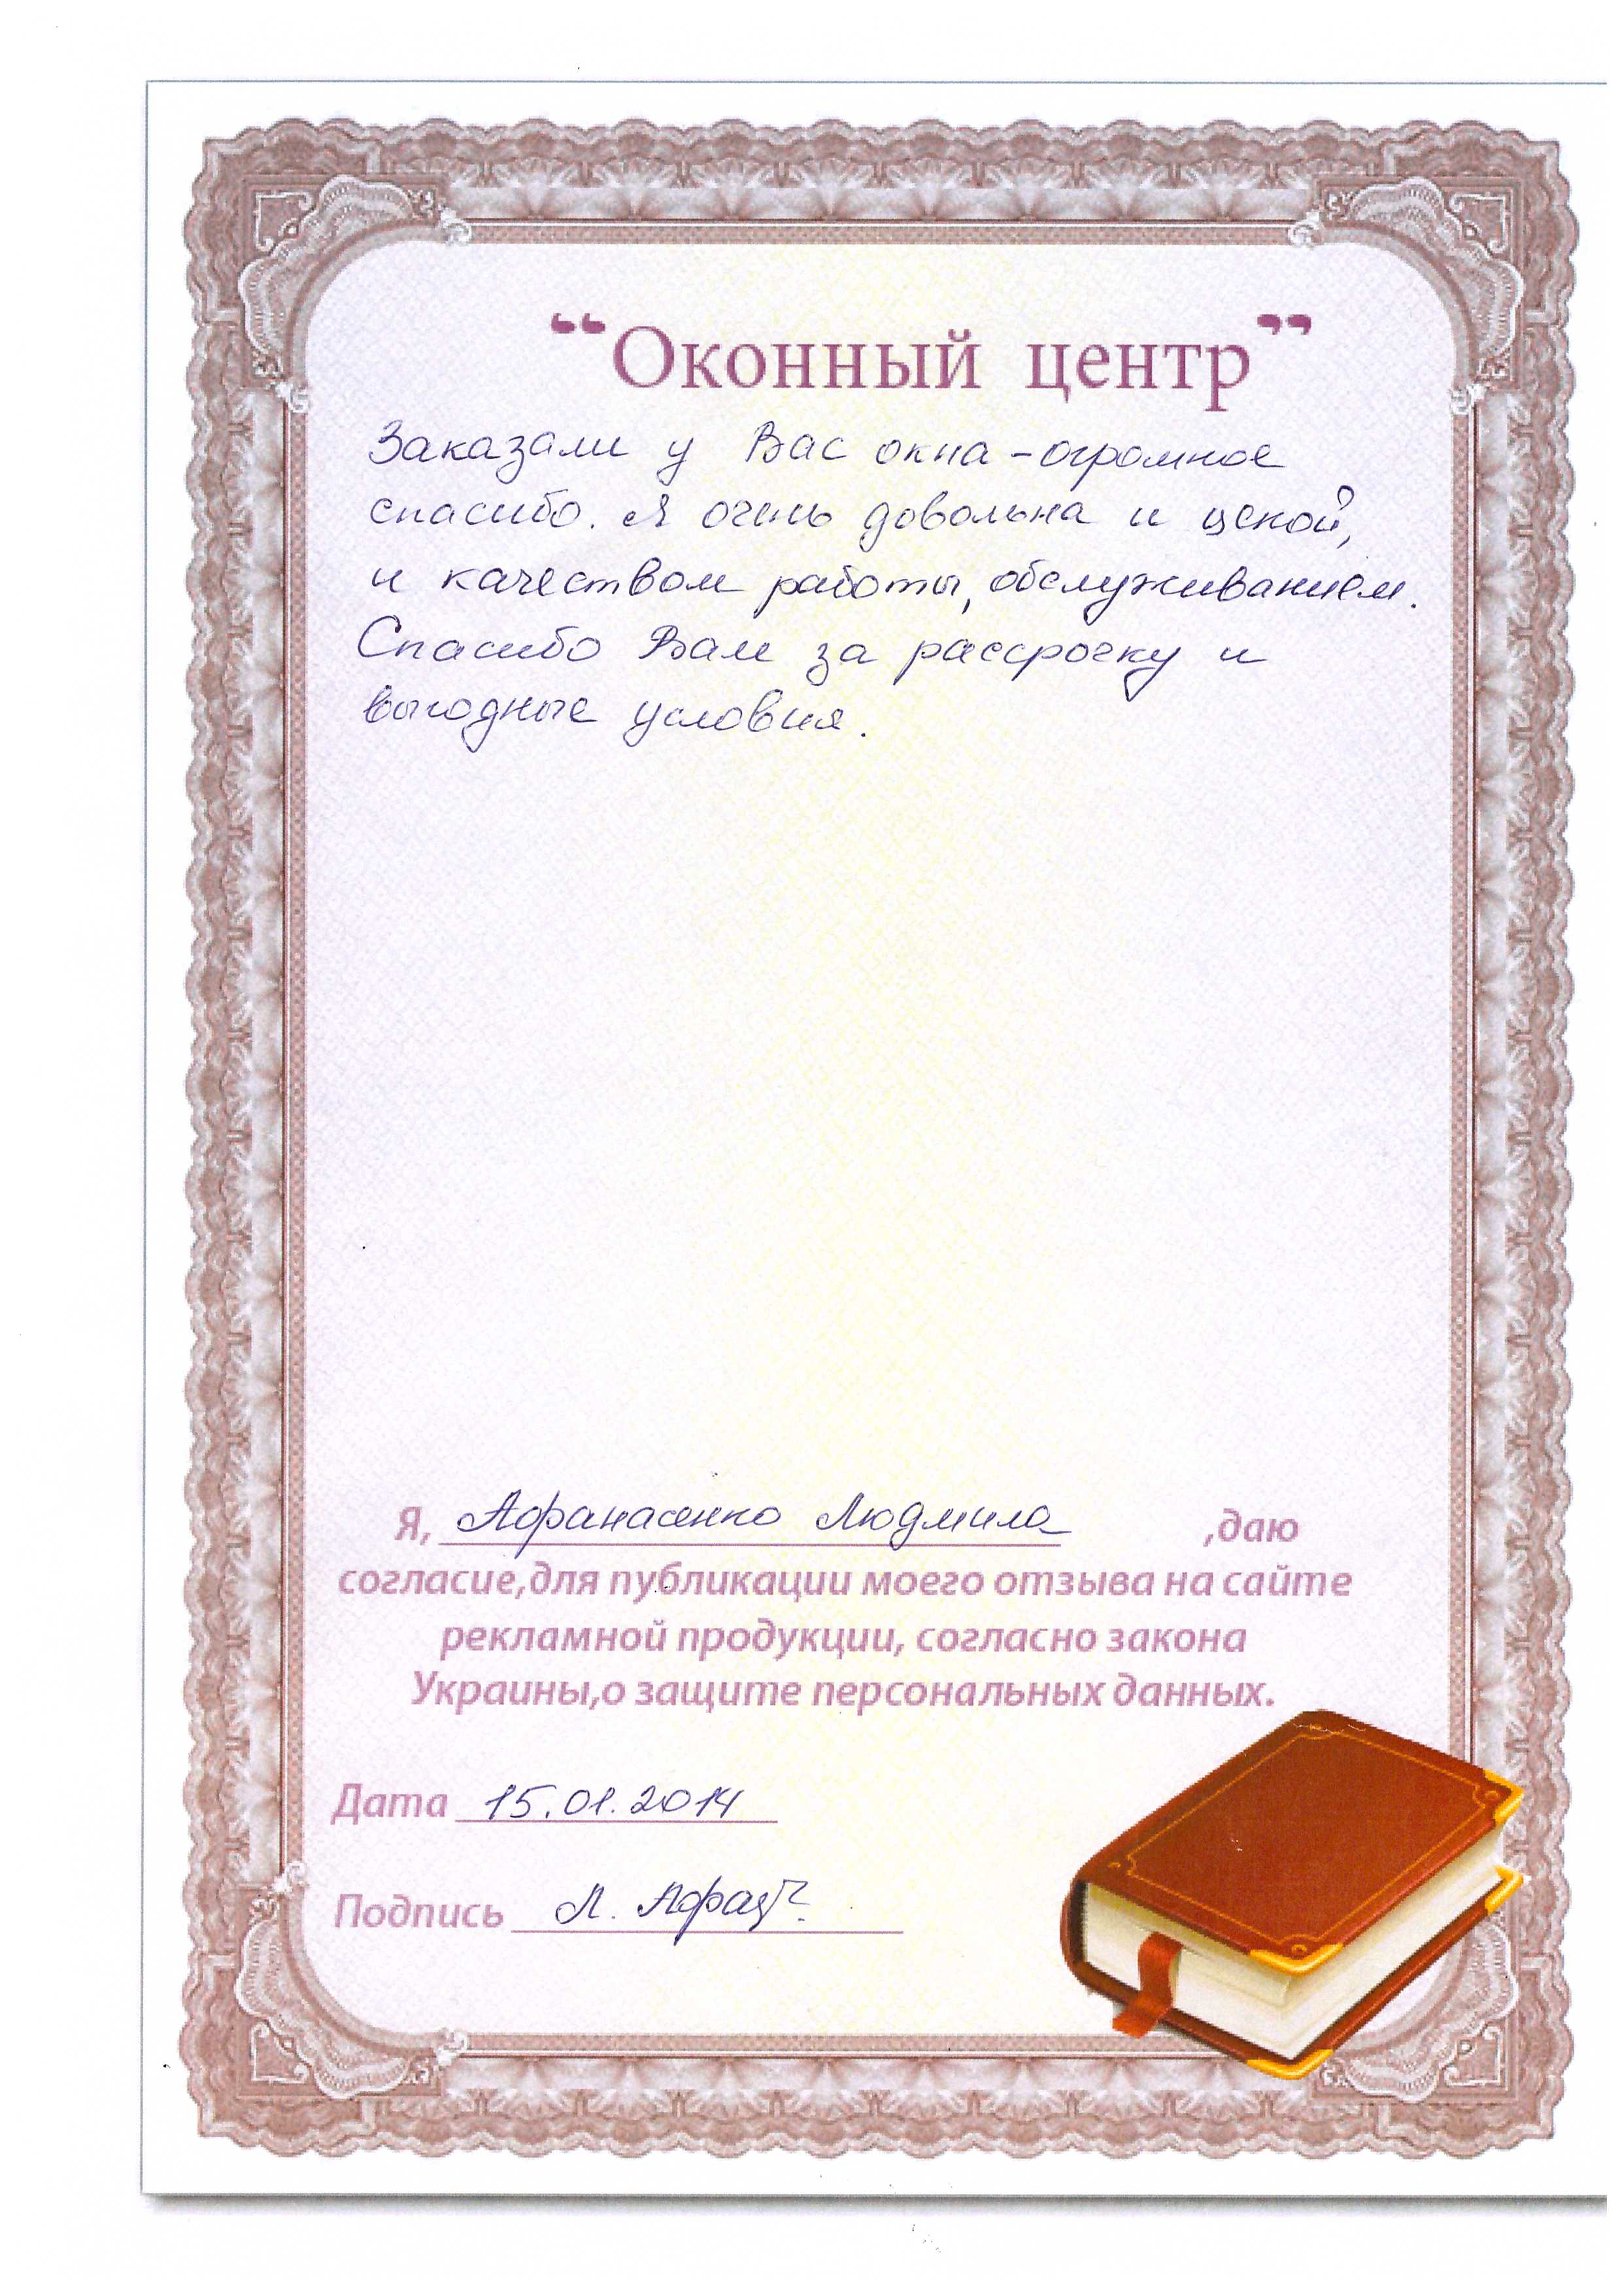 “Оконный центр”
Заказали у Вас окна - огромное
спасибо. Я очень довольна и ценой,
и качеством работы, обслуживанием.
Спасибо Вам за рассрочку и
выгодные условия.
Я, Афанасенко Людмила ,даю
согласие,для публикации моего отзыва на сайте
рекламной продукции, согласно закона
Украины,о защите персональных данных.
Дата 15.01.2014
Подпись Л.